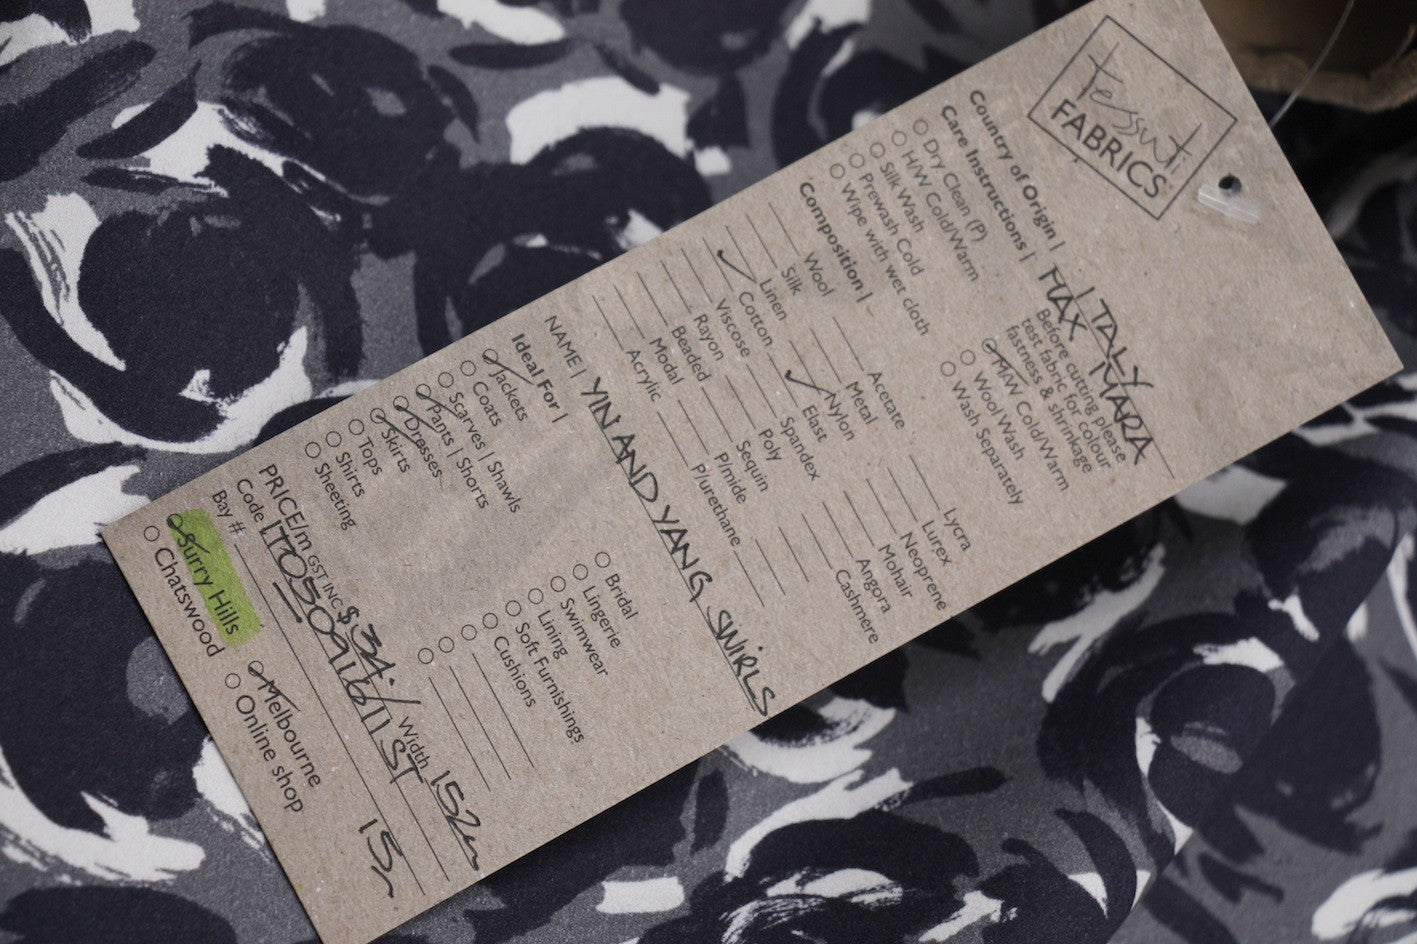 tessuti
FABRICS
Country of Origin | ITALY
Care Instructions | MAX MARA
Dry Clean (P)
H/W Cold/Warm
Silk Wash
Prewash Cold
Wipe with wet cloth
Before cutting please
test fabric for colour
fastness & shrinkage
M/W Cold/Warm
Wool Wash
Wash Separately
Composition |
Wool
Silk
Linen
Cotton
Viscose
Rayon
Beaded
Modal
Acrylic
Acetate
Metal
Nylon
Elast
Spandex
Poly
Sequin
P/mide
P/urethane
Lycra
Lurex
Neoprene
Mohair
Angora
Cashmere
NAME | YIN AND YANG SWIRLS
Ideal For |
Jackets
Coats
Scarves | Shawls
Pants | Shorts
Dresses
Skirts
Tops
Shirts
Sheeting
Bridal
Lingerie
Swimwear
Lining
Soft Furnishings
Cushions
PRICE/m GST INC $34./ Width 152
Code
Bay #
Surry Hills
Chatswood
Melbourne
Online shop